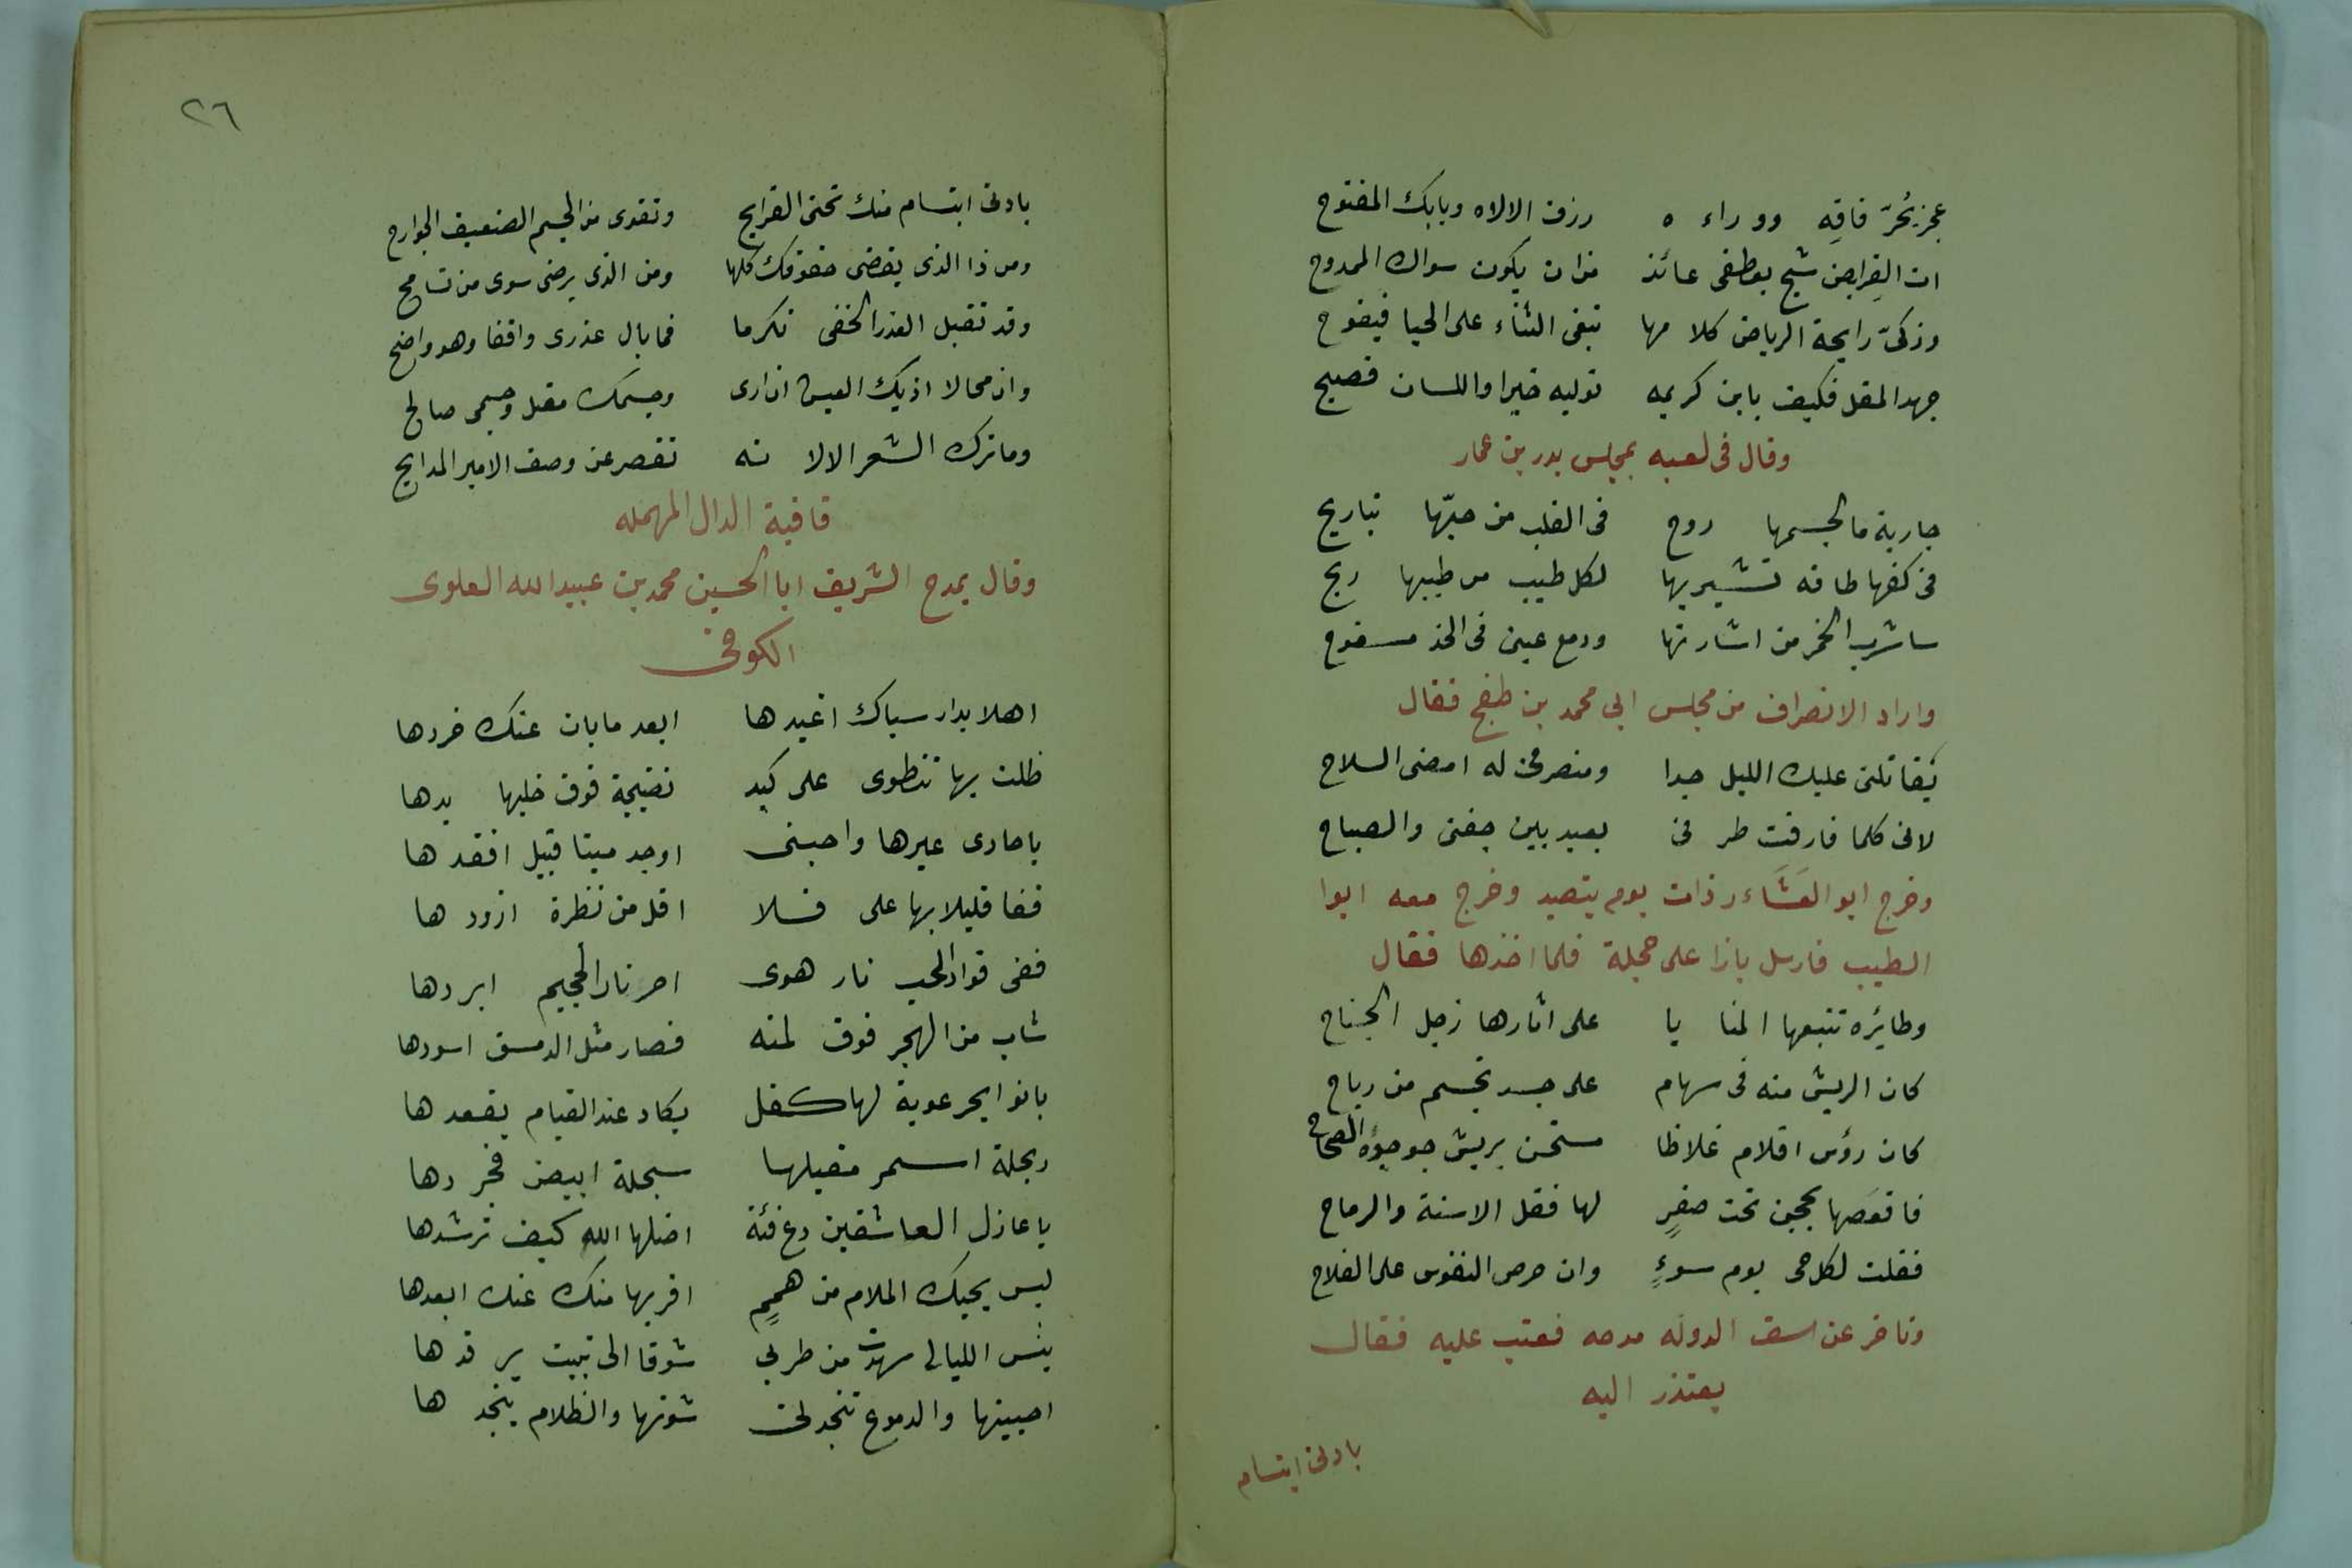 عجز بحُرّ فاقه ووراءه رزق الالاه وبابك المفتوح
ان القريض شج بعطفى عائذ من ان يكون سواك الممدوح
وذكىّ رايحة الرياض كلامها تبغى الثناء على الحيا فيفوح
جهد المقل فكيف بابن كريمه توليه خيرا واللسان فصيح
وقال فى لعبه بمجلس بدر بن عمار
جارية ما لجسمها روح فى القلب من حبّها تباريح
فى كفها طاقه تشير بها لكل طيب من طيبها ريح
ساشرب الخمر من اشارتها ودمع عينى فى الخد مسفوح
واراد الانصراف من مجلس ابى محمد بن طغج فقال
يقاتلنى عليك الليل جدا ومنصرفى له امضى السلاح
لانى كلما فارقت طرفى بعيد بين جفنى والصباح
وخرج ابو العَشَاءر ذات يوم يتصيد وخرج معه ابوا
الطيب فارسل بازا على حجلة فلما اخذها فقال
وطايره تتبعها المنايا على اثارها زجل الجناح
كان الريش منه فى سهام على جسد تجسم من رياح
كان رؤس اقلام غلاظا مسحن بريش جوجؤه الصحاح
فاقعَصَها بحجن تحت صفرٍ لها فعل الاسنة والرماح
فقلت لكل حى يوم سوءٍ وان حرص النفوس على الفلاح
وتاخر عن سيف الدوله مدحه فعتب عليه فقال
يعتذر اليه
بادنى ابتسام
٢٦
بادنى ابتسام منك تحيى القرايح وتقوى من الجسم الضعيف الجوارح
ومن ذا الذى يقضى حقوقك كلها ومن الذى يرضى سوى من تسامح
وقد تقبل العذر الخفى تكرما فما بال عذرى واقفا وهو واضح
وان محالا اذ بك العيش ان ارى وجسمك معتل وجسمى صالح
وما ترك الشعر الا لانه تقصر عن وصف الامير المدايح
قافية الدال المهمله
وقال يمدح الشريف ابا الحسين محمد بن عبيد الله العلوى
الكوفى
اهلا بدار سباك اغيدها ابعد ما بان عنك خردها
ظلت بها تنطوى على كبد نضيجة فوق خلبها يدها
يا حادى عيرها واحسبنى اوجد ميتا قبيل افقدها
قفا قليلا بها على فلا اقل من نظرة ازودها
ففى فواد المحب نار هوى احر نار الجحيم ابردها
شاب من الهجر فوق لمته فصار مثل الدمسق اسودها
بانوا بخرعوبة لها كفل يكاد عند القيام يقعدها
ربحلة اسمر مقبلها سبحلة ابيض مجردها
يا عاذل العاشقين دع فئة اضلها الله كيف ترشدها
ليس يحيك الملام من هممٍ اقربها منك عنك ابعدها
بئس الليالى سهدت من طربى شوقا الى تبيت يرقدها
احييتها والدموع تنجدنى شونها والظلام ينجدها